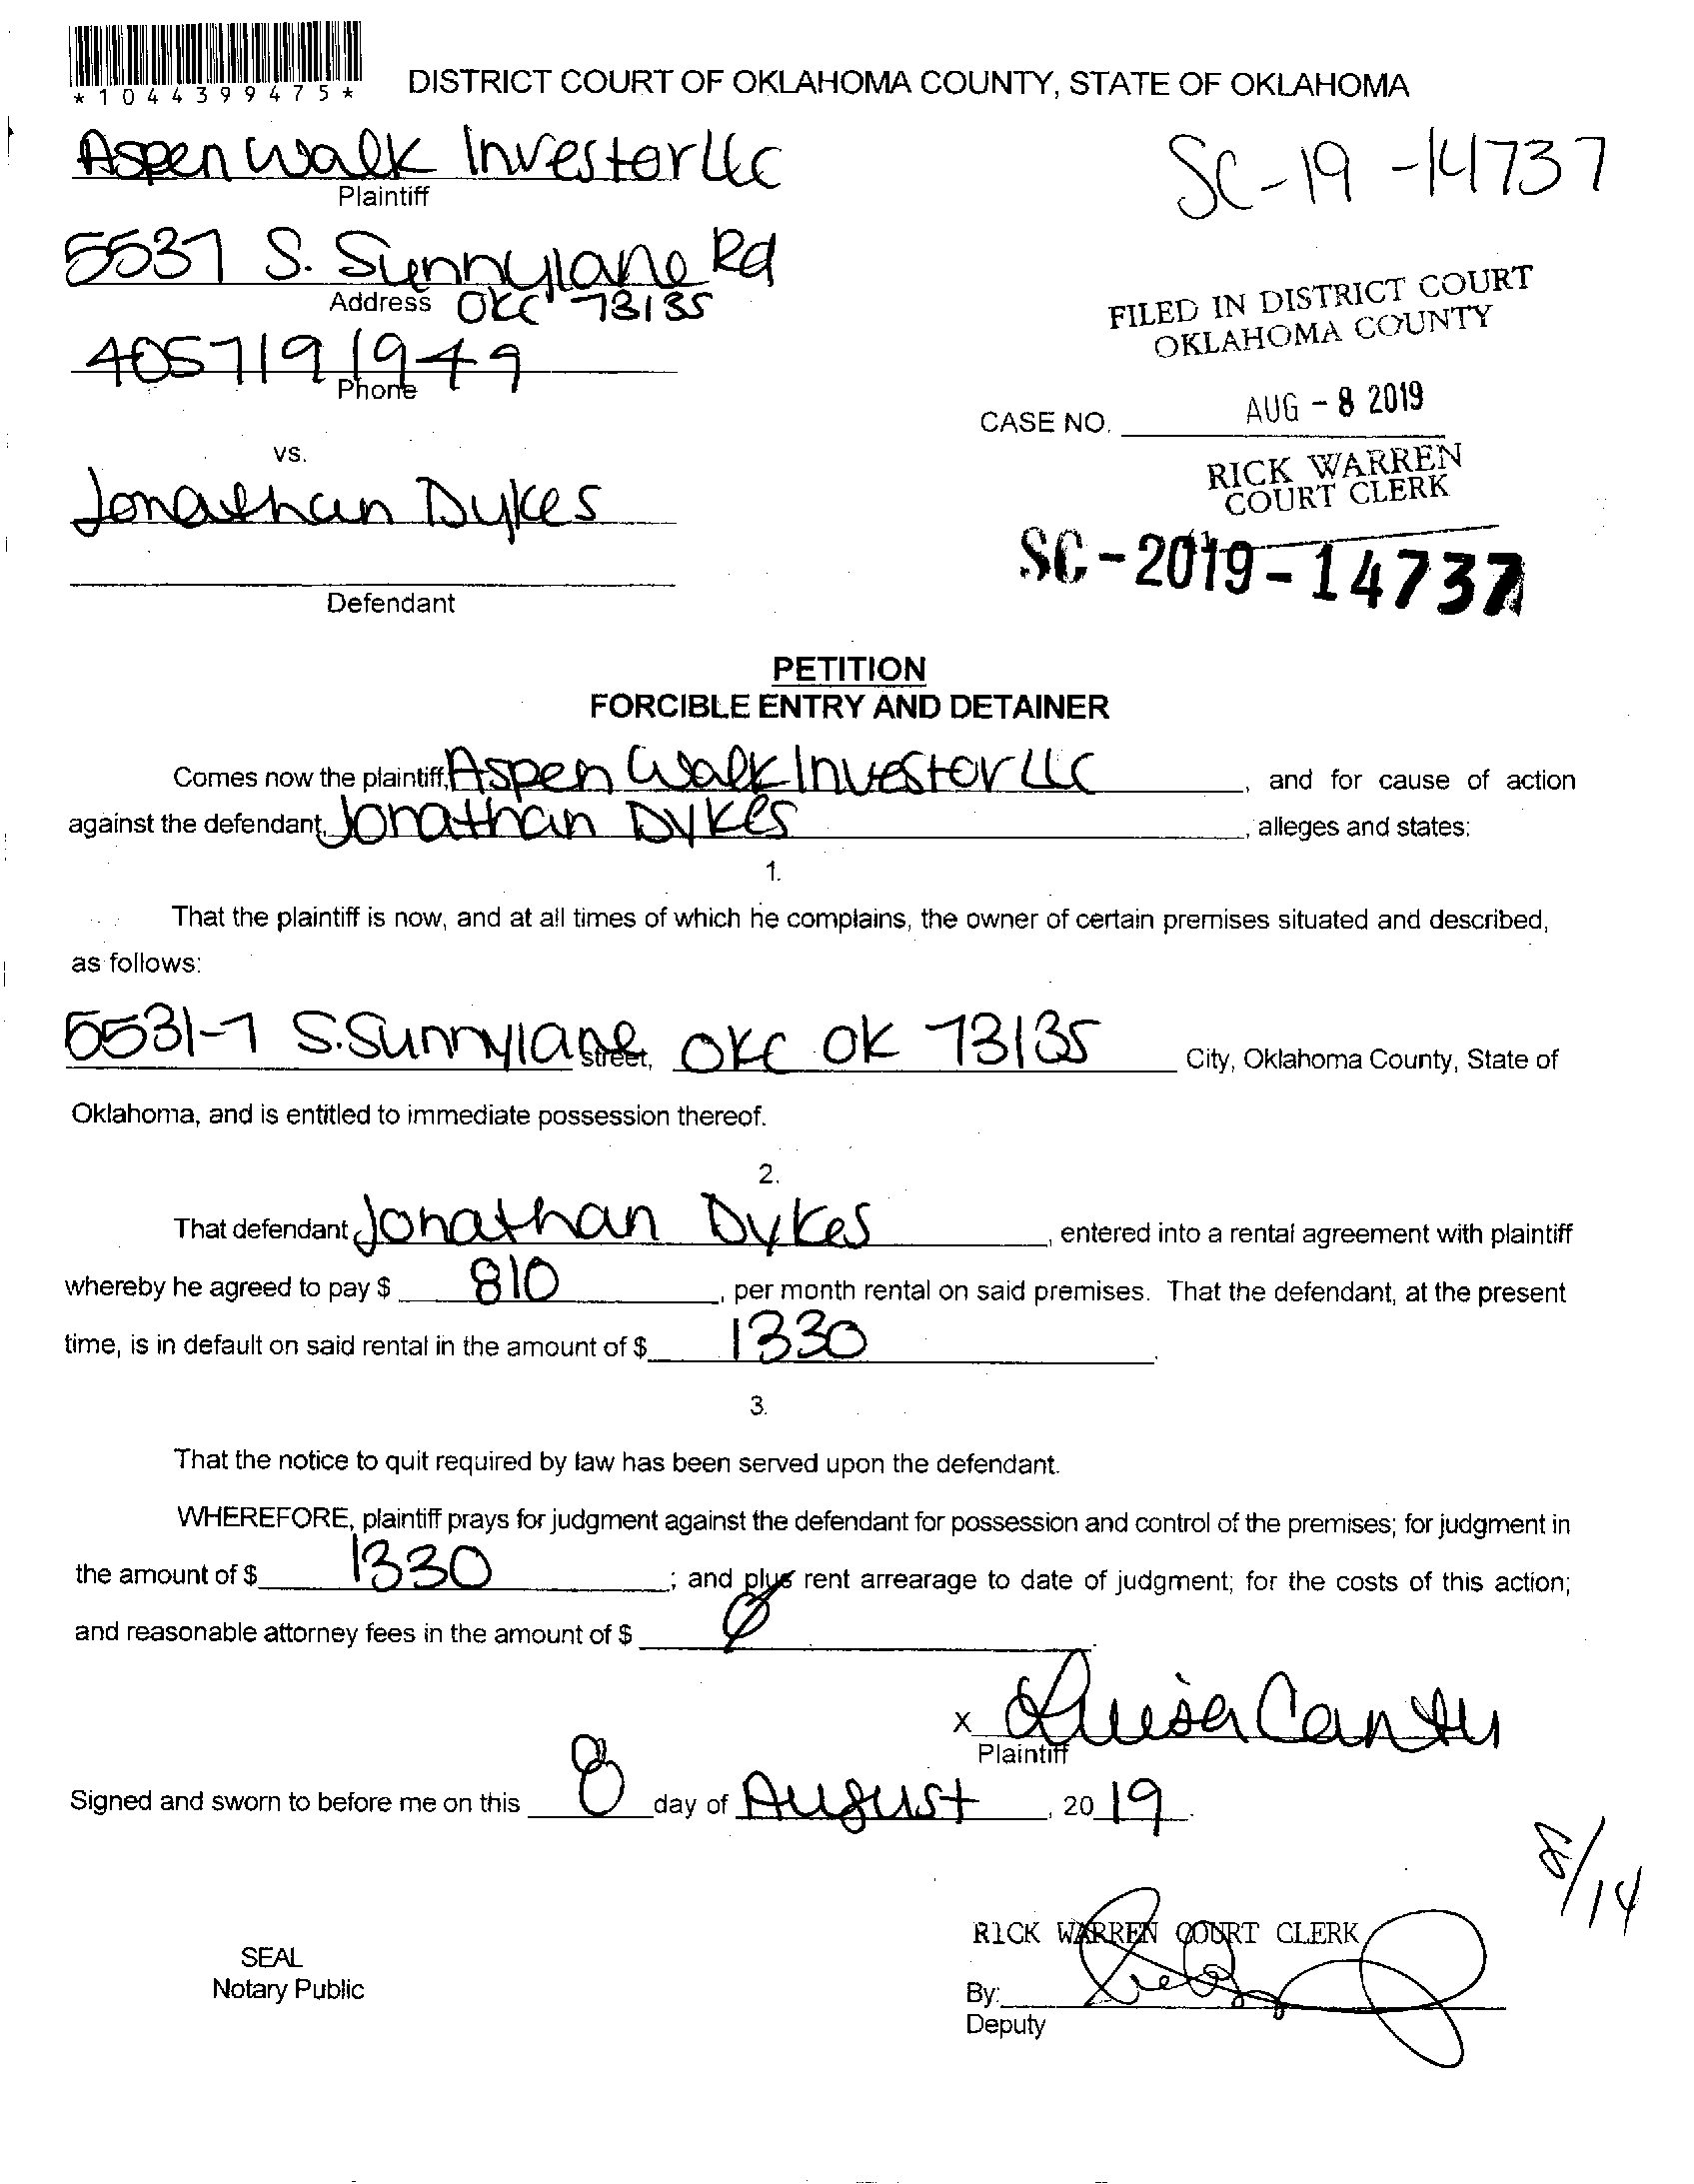 *1044399475*
DISTRICT COURT OF OKLAHOMA COUNTY, STATE OF OKLAHOMA
Aspen Walk Investor LLC
Plaintiff
SC-19-14737
5537 S. Sunnylane Rd
Address OKC 73135
FILED IN DISTRICT COURT
OKLAHOMA COUNTY
4057191949
Phone
CASE NO.
AUG - 8 2019
vs.
RICK WARREN
COURT CLERK
Jonathan Dykes
SC-2019-14737
Defendant
PETITION
FORCIBLE ENTRY AND DETAINER
Comes now the plaintiff, Aspen Walk Investor LLC, and for cause of action
against the defendant, Jonathan Dykes, alleges and states:
1.
That the plaintiff is now, and at all times of which he complains, the owner of certain premises situated and described,
as follows:
5531-7 S. Sunnylane street, OKC OK 73135 City, Oklahoma County, State of
Oklahoma, and is entitled to immediate possession thereof.
2.
That defendant Jonathan Dykes, entered into a rental agreement with plaintiff
whereby he agreed to pay $ 810, per month rental on said premises. That the defendant, at the present
time, is in default on said rental in the amount of $ 1330.
3.
That the notice to quit required by law has been served upon the defendant.
WHEREFORE, plaintiff prays for judgment against the defendant for possession and control of the premises; for judgment in
the amount of $ 1330; and plus rent arrearage to date of judgment; for the costs of this action;
and reasonable attorney fees in the amount of $ Ø.
x Luisa Cantu
Plaintiff
Signed and sworn to before me on this 8 day of August, 20 19.
8/14
RICK WARREN COURT CLERK
SEAL
Notary Public
By:
Deputy